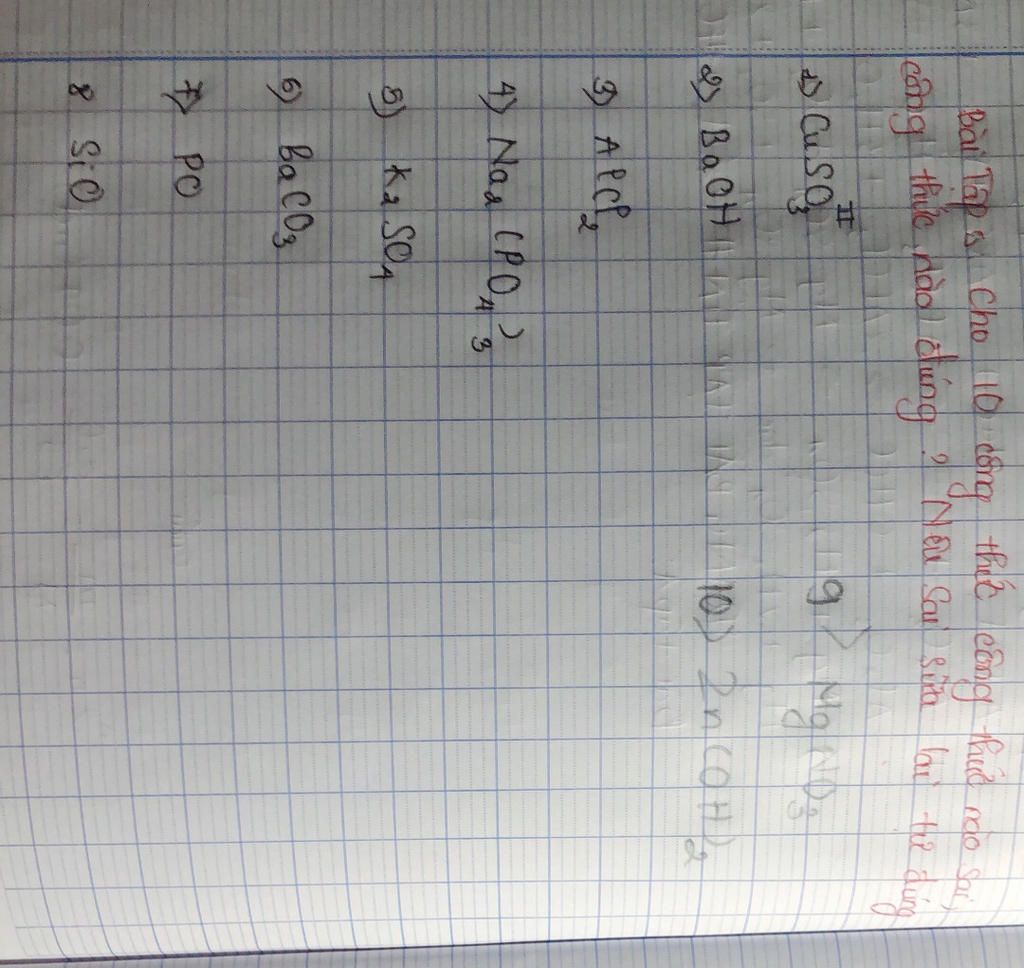 Bài Tập : Cho 10 công thức công thức nào sai,
công thức nào đúng ? Nếu sai sửa lại từ đúng
1) CuSO₃ II
2) BaOH
3) AlCl₂
4) Na₂ (PO₄)₃
5) K₂SO₄
6) BaCO₃
7) PO
8 SiO
9) MgNO₃
10) Zn(OH)₂